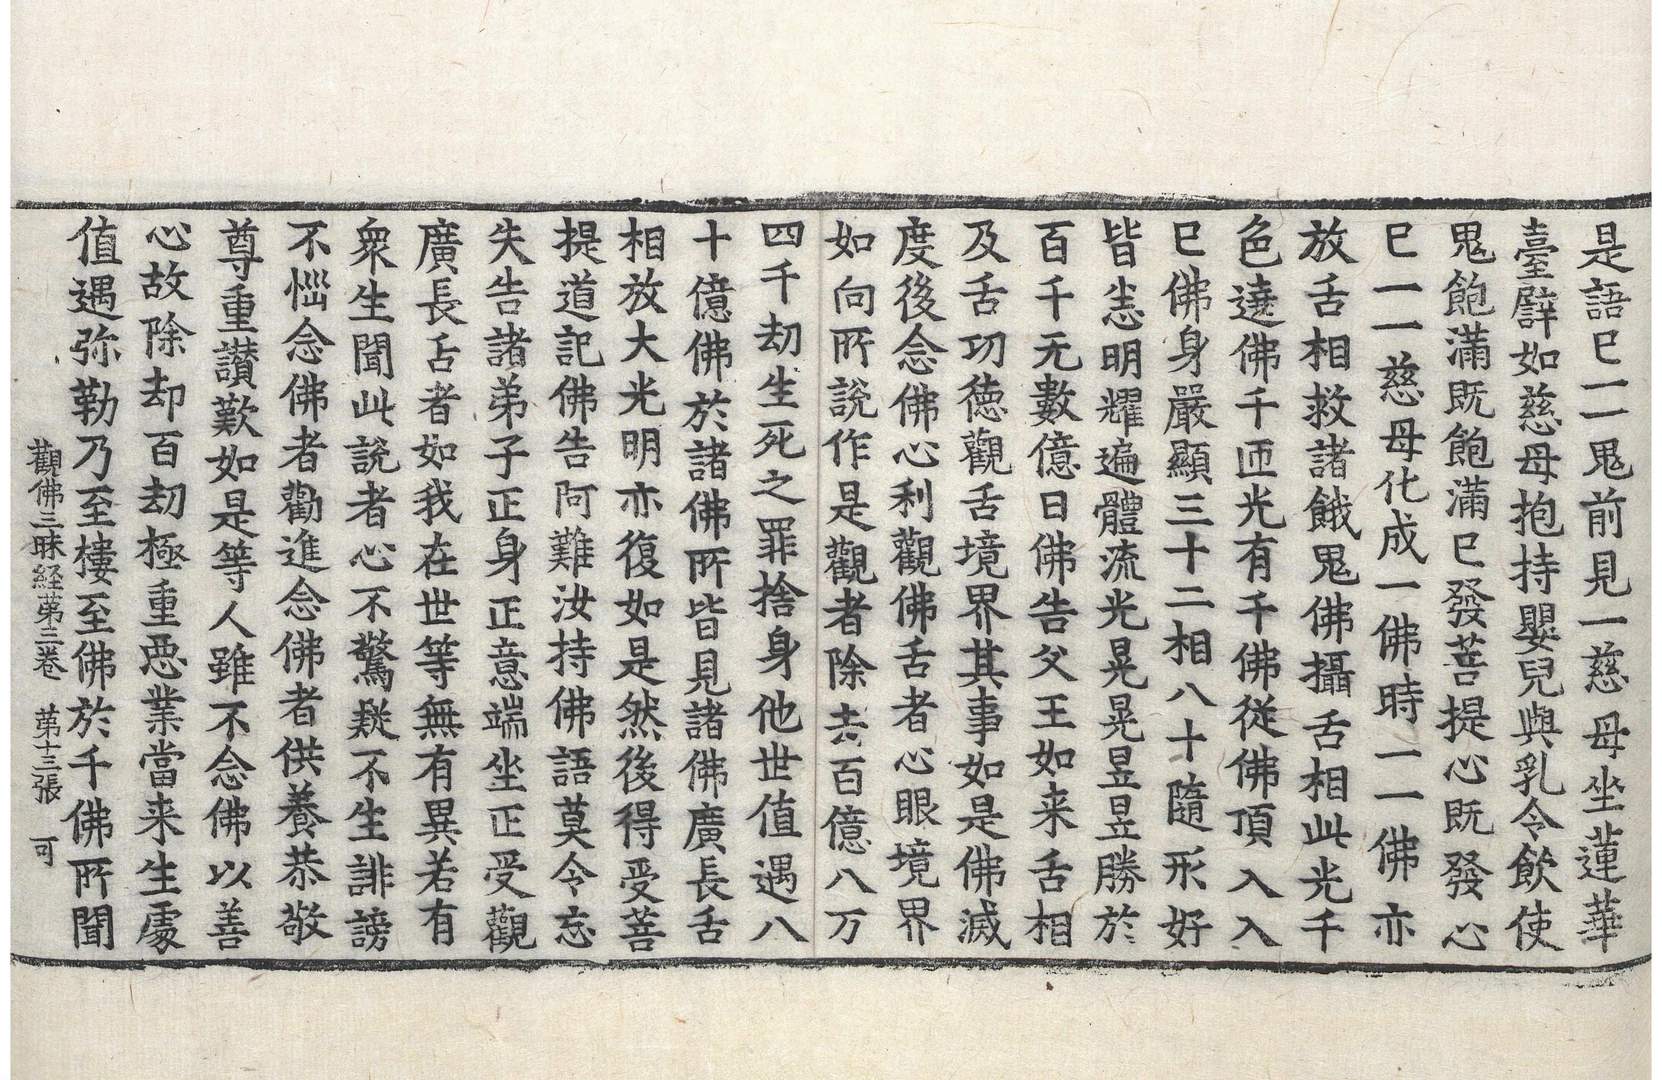 是語已一一鬼前見一慈母坐蓮華
臺譬如慈母抱持嬰兒與乳令飲使
鬼飽滿既飽滿已發菩提心既發心
已一一慈母化成一佛時一一佛亦
放舌相救諸餓鬼佛攝舌相此光千
色遶佛千迊光有千佛從佛頂入入
已佛身嚴顯三十二相八十隨形好
皆悉明耀遍體流光晃晃昱昱勝於
百千无數億日佛告父王如来舌相
及舌功德觀舌境界其事如是佛滅
度後念佛心利觀佛舌者心眼境界
如向所說作是觀者除去百億八万
四千劫生死之罪捨身他世值遇八
十億佛於諸佛所皆見諸佛廣長舌
相放大光明亦復如是然後得受菩
提道記佛告阿難汝持佛語莫令忘
失告諸弟子正身正意端坐正受觀
廣長舌者如我在世等無有異若有
衆生聞此說者心不驚疑不生誹謗
不惱念佛者勸進念佛者供養恭敬
尊重讃歎如是等人雖不念佛以善
心故除却百劫極重惡業當来生處
值遇弥勒乃至樓至佛於千佛所聞
觀佛三昧経苐三卷 苐十三張 可